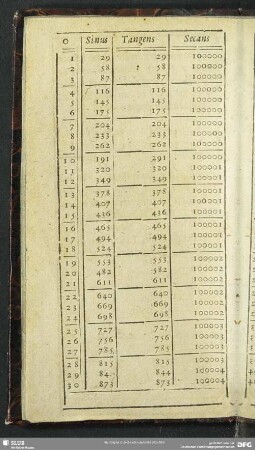 0 Sinus Tangens Secans
1 29 29 100000
2 58 58 100000
3 87 87 100000
4 116 116 100000
5 145 145 100000
6 175 175 100000
7 204 204 100000
8 233 233 100000
9 262 262 100000
10 191 291 100000
11 320 320 100000
12 349 349 100000
13 378 378 100000
14 407 407 100001
15 436 436 100001
16 465 465 100001
17 494 494 100001
18 524 524 100001
19 553 553 100002
20 482 582 100002
21 611 611 100002
22 640 640 100002
23 669 669 100002
24 698 698 100002
25 727 727 100003
26 756 756 100003
27 785 785 100003
28 815 815 100003
29 84 844 100004
30 873 873 100004
SLUB
DFG